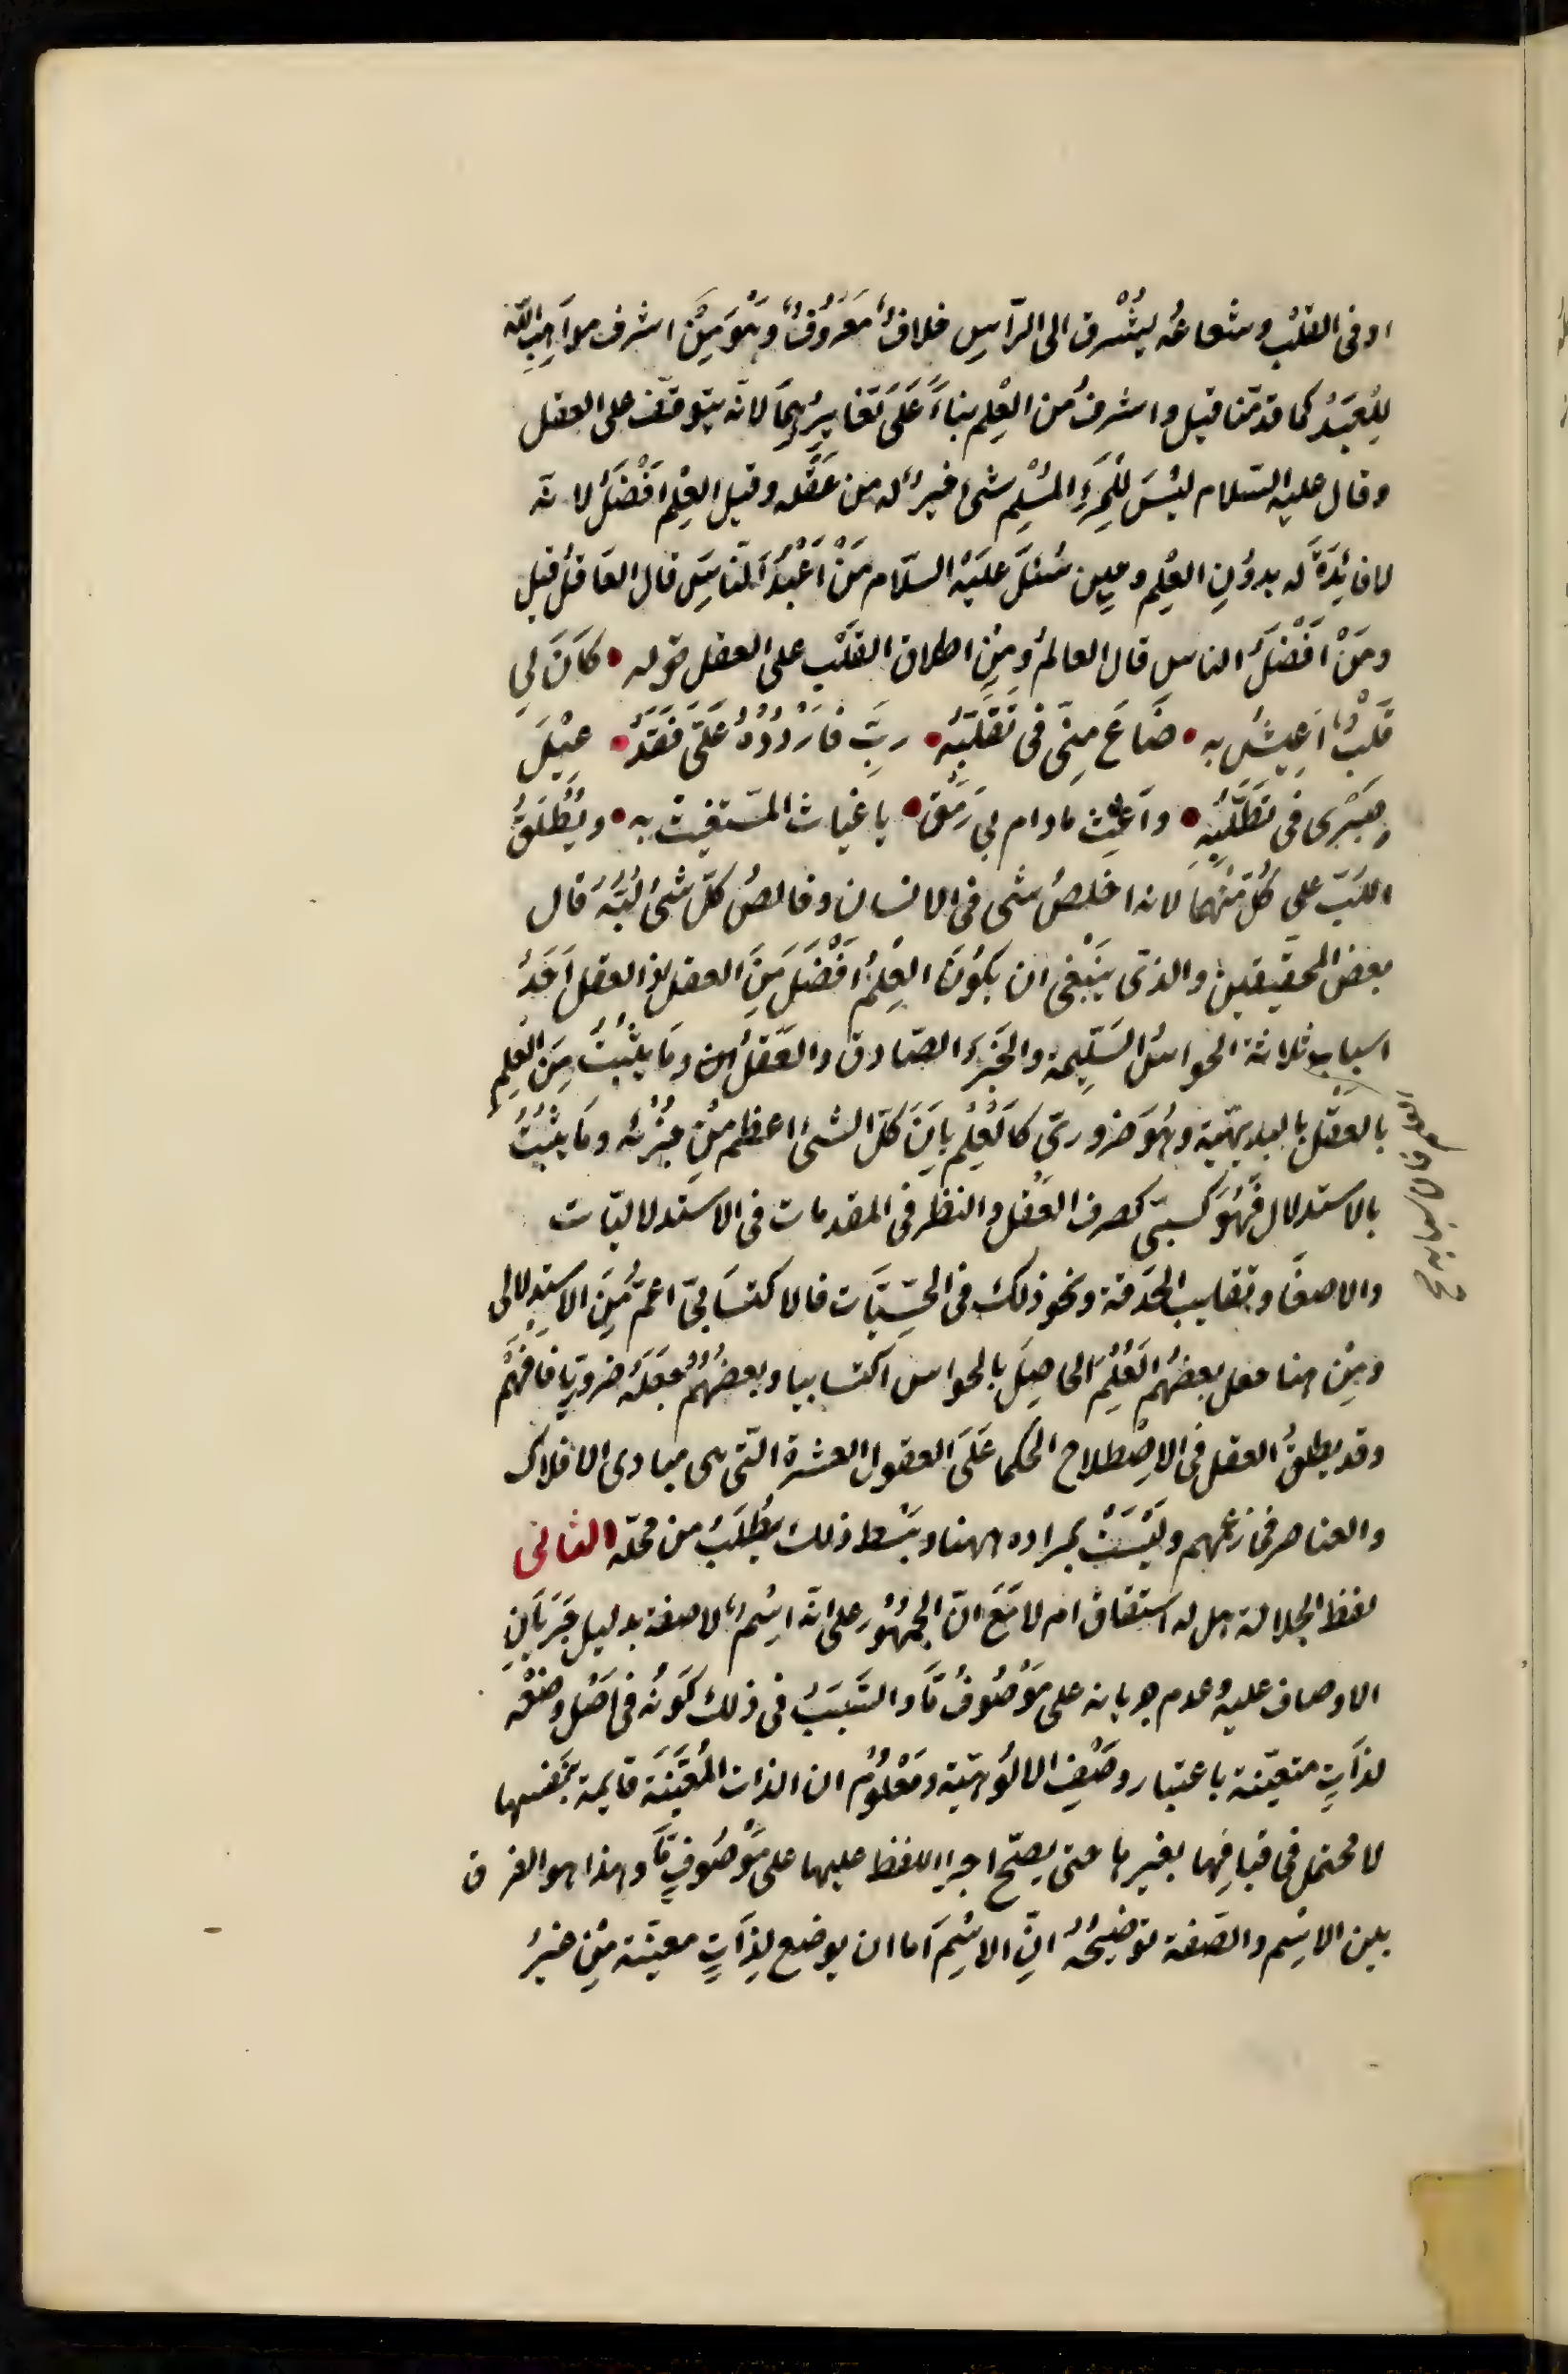 او فى القلب وشعاعُه يُشْرق الى الرّاسِ خلافٌ مَعْرُوفٌ وَهُوَ مِنْ اشرف مواهِبِ الله
لِلْعَبْدِ كما قدمّنا قيل واشرفُ من العِلْم بناءً عَلَى تَغَايرُهِمَا لانّه يتوقّف على العقل
وقال عليه السّلام ليْسَ لِلْمَرْءِ المُسْلِم شئ خيرٌ له من عَقْله وقيل العِلْم اَفْضَلُ لانّه
لا فائِدَةَ له بدوُنِ العِلْم وحِين سُئلَ علَيْه السلَّام مَنْ اَعْبَدُ الَنّاسِ قال العَاقلُ قيل
ومَنْ اَفْضَلُ الناس قال العالمُ وَمِنِ اطلاق القَلْب على العقل قوله • كَانَ لِي
قَلْبٌ اَعِيْشُ به • ضَاعَ مِنّى فى تَقَلّبِهِ • ربِّ فَارْدُدْهُ عَلَىّ فَقَدْ • عِيْلَ
صَبْرِى فى تَطَلّبِهِ • وَاَغِثْ مادام بى رَمَقٌ • يا غياث المسْتغيْث به • ويُطْلَقُ
اللُبّ على كُلّ مّنْهُمَا لانه اخلصُ شى فى الانسان وخالصُ كلّ شئ لُبُّهُ قال
بعض المحقّيقين والذى يَنْبَغى ان يكوُنَ العِلْمُ اَفْضَلَ مَنَ العقل اذ العقل اَحَدُ
اسبابٍ ثلاثة الحواسُّ السَّلِيمة والخَبَرُ الصّادق والعَقْلُ وَمَا يثْبُتُ مِنَ العِلْمِ
بالعَقْل بالبديهيّة وهُوَ ضروريّ كالعِلْمِ باَنَ كلّ الشئ اعظم مِنْ جُزْئه ومَا يثْبُتُ
بالاستدلال فَهُوَ كسبىّ كصرف العَقْل والنظر فى المقدمات فى الاستدلاليّات
والاصغَا وتقليب الحَدقة ونحو ذلك فى الحِسّيّات فالاكتسَابىّ اعمّ مِنَ الاستِدلالى
ومِنْ هنا جعل بعضهُم العْلِمَ الحاصِلَ بالحواس اكتسابيا وبعضُهُمْ جَعَلَهُ ضروريّا فَافْهَمْ
وقد يطلقُ العقل فى الاصِطلاح الحكما عَلَى العقول العشرة التّى هى مبادى الافلاك
والعناصر فى زعْمِهم ولَيْسَتْ بمراده ههنا وبَسْط ذلك يُطْلَبُ من محلّه الثانى
لفظ الجلالة هل له اشتقاق ام لا مَعَ انّ الجمْهُوُرِ على انّه اسْمٌ لا صفة بدليل جَرَيَانِ
الاوصاف عليه وعدم جريانه على مَوْصُوفٍ مَّا والسَّبَبُ فى ذلك كَوَنُه فى اَصْل وضْعه
لذَاتٍ متعيّنة باعتبار وصْفِ الالُوهيّة ومَعْلُومٌ ان الذات المُعَيَّنَة قايمة بنَفسها
لا محتمل فى قيامِهَا بغيرها حتى يصحّ اجرا اللفظ عليها على مَوْصُوفٍ مَّا وهذا هو الفرق
بين الاسْم والصّفة توْضيحُهُ انّ الاسْمَ اما ان يوضع لِذَاتٍ معيّنة مِنْ غيرُ